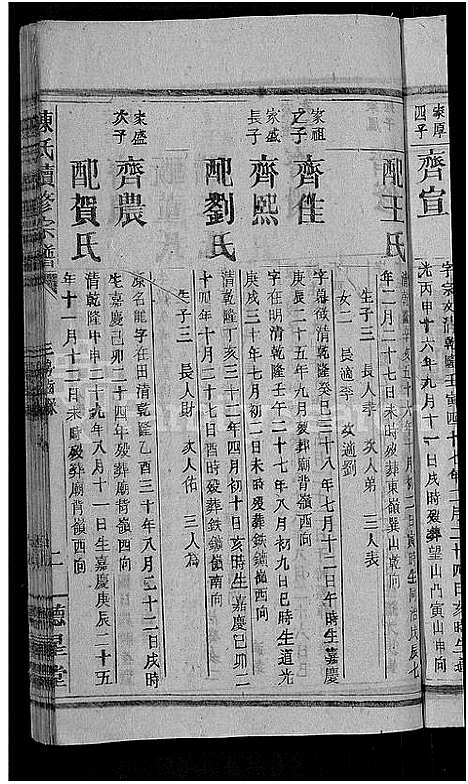 家厚
四子
齊宣
字宗文清乾隆壬寅四十七年二月二十四日亥時生道
光丙申十六年九月十一日戌時歿葬望山凸寅山申向
配王氏
年二月二十七日未時歿葬東嶺巽山乾向
生子三 長人季 次人弟 三人表
女二 長適李 次適劉
家祖
之子
齊佳
字尊徵清乾隆癸巳三十八年七月十二日午時生嘉慶
庚辰二十五年九月歿葬廟背嶺西向
家盛
長子
齊熙
字在明清乾隆壬午二十七年八月初九日巳時生道光
庚戌三十年七月初二日未時歿葬鉄鎖嶺西向
配劉氏
清乾隆丁亥三十二年四月初十日亥時生嘉慶己卯二
十四年十月二十七日酉時歿葬鉄鎖嶺南向
生子三 長人財 次人佑 三人為
家盛
次子
齊農
原名能字在田清乾隆乙酉三十年八月二十二日戌時
生嘉慶己卯二十四年歿葬廟背嶺西向
配賀氏
清乾隆甲申二十九年八月十一日生嘉慶庚辰二十五
年十一月十二日未時歿葬廟背嶺西向
陳氏續修宗譜
德星堂